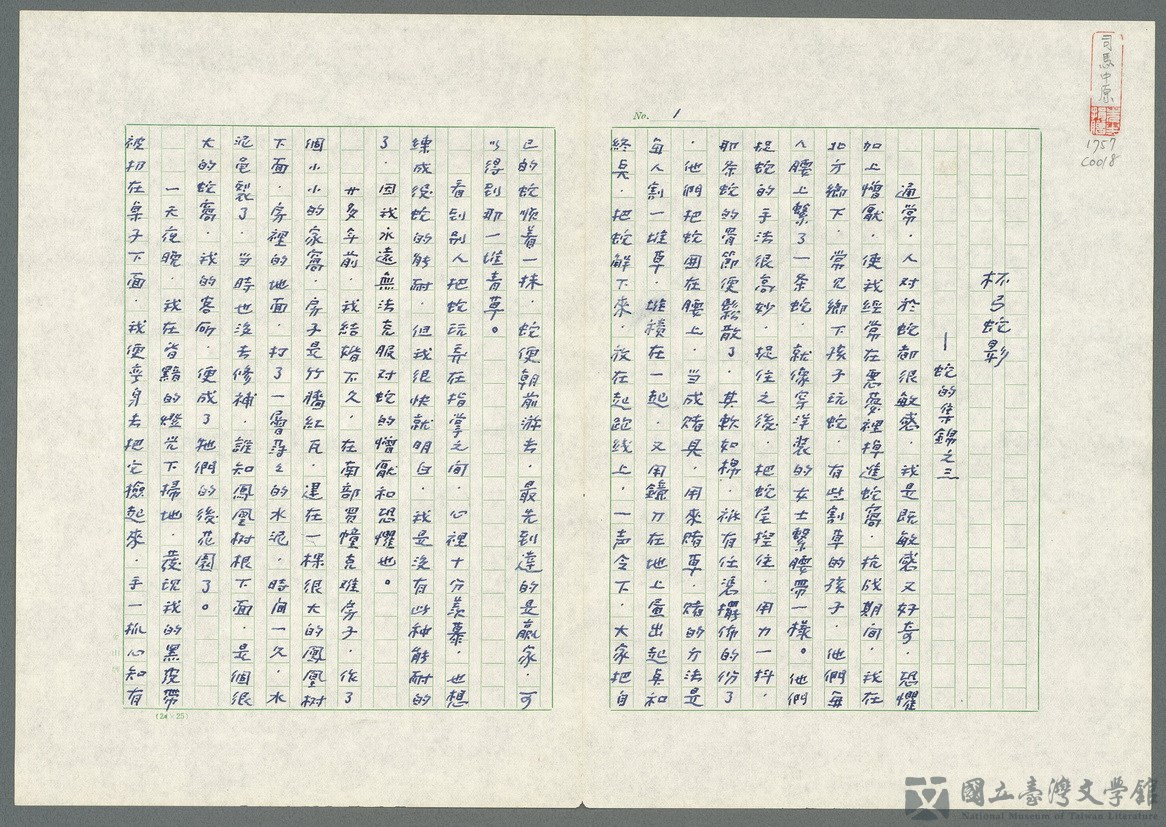 No. 1
司馬中原
1757
C0018
杯弓蛇影
—蛇的集錦之三
通常．人对於蛇都很敏感．我是既敏感又好奇．恐懼
加上憎厭．使我經常在惡夢裡掉進蛇窩．抗战期间．我在
北方鄉下．常见鄉下孩子玩蛇．有些割草的孩子．他們每
人腰上繫了一条蛇．就像穿洋装的女士繫腰帶一樣。他們
捉蛇的手法很高妙．捉住之後．把蛇尾捏住．用力一抖．
那条蛇的骨節便鬆散了．其軟如棉．祇有任憑擺佈的份了
．他們把蛇圍在腰上．当成賭具．用來賭草．賭的方法是
每人割一堆草．堆積在一起．又用鐮刀在地上畫出起点和
終点．把蛇解下來．放在起跑线上．一声令下．大家把自
己的蛇順着一抹．蛇便朝前游去．最先到達的是贏家．可
以得到那一堆青草。
看到別人把蛇玩弄在指掌之间．心裡十分羡慕．也想
練成後蛇的能耐．但我很快就明白．我是沒有此种能耐的
了．因我永遠無法克服对蛇的憎厭和恐懼也。
廿多年前．我結婚不久．在南部買幢克难房子．後了
個小小的家窩．房子是竹牆紅瓦．建在一棵很大的鳳凰树
下面．房裡的地面．打了一層薄々的水泥．時间一久．水
泥龟裂了．当時也沒去修補．誰知鳳凰树根下面．是個很
大的蛇窩．我的客所．便成了牠們的後花園了。
一天夜晚．我在昏黯的燈光下掃地．發現我的黑皮帶
被扔在桌子下面．我便彎身去把它撿起來．手一抓心知有
(24×25)
國立臺灣文學館
National Museum of Taiwan Literature